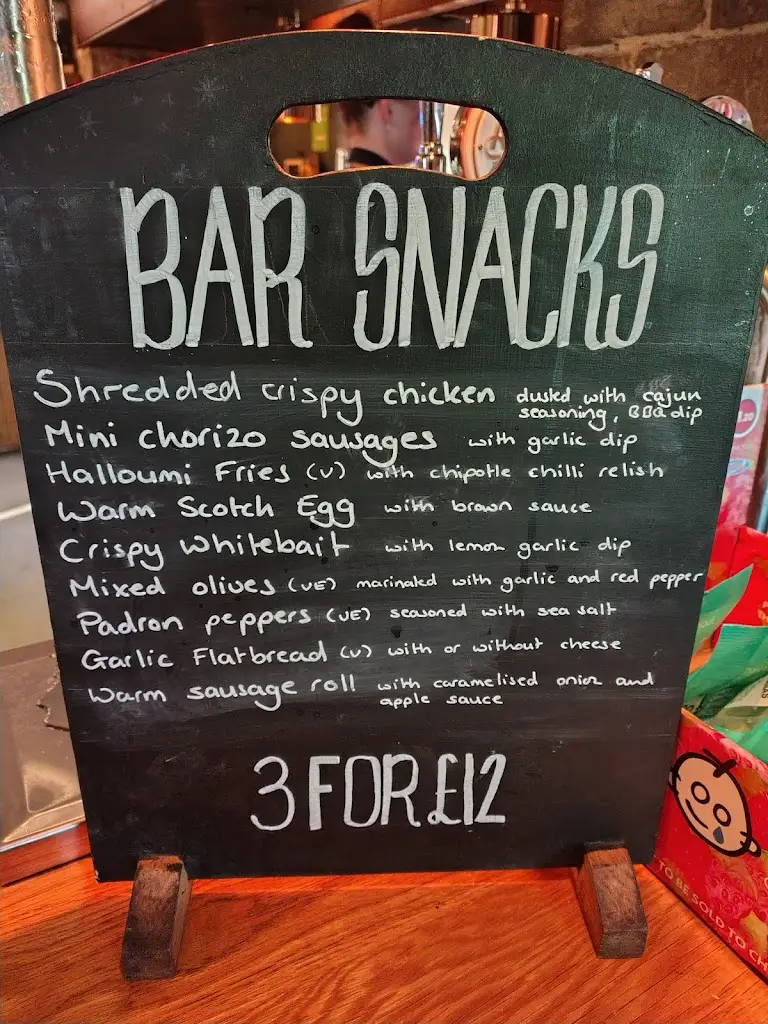 BAR SNACKS
Shredded crispy chicken dusted with cajun
seasoning, BBQ dip
Mini chorizo sausages with garlic dip
Halloumi Fries (V) with chipotle chilli relish
Warm Scotch Egg with brown sauce
Crispy Whitebait with lemon garlic dip
Mixed olives (VE) marinated with garlic and red pepper
Padron peppers (VE) seasoned with sea salt
Garlic Flatbread (V) with or without cheese
Warm sausage roll with caramelised onion and
apple sauce
3 FOR £12
TO BE SOLD TO